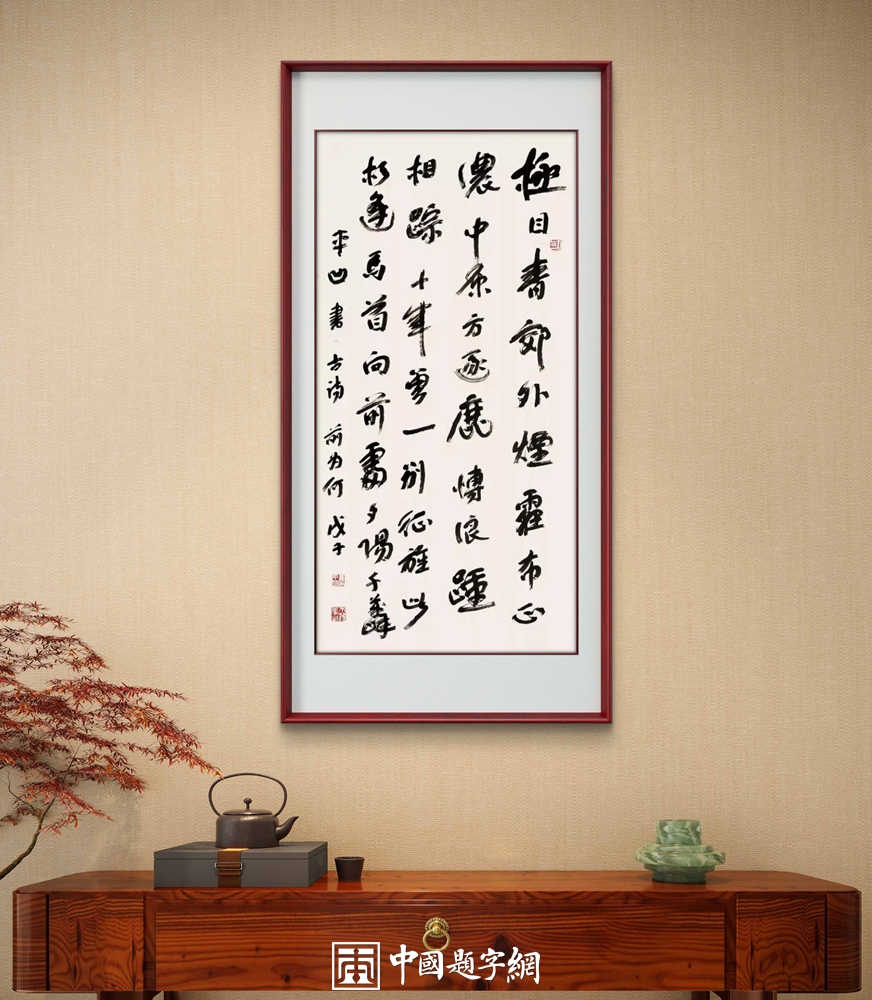 極目青郊外煙霾布正
濃中原方逐鹿博浪踵
相踪十年曾一别征此
相逢馬首向前處夕陽千萬峰
平凹書古詩前为何戊子
中國题字網